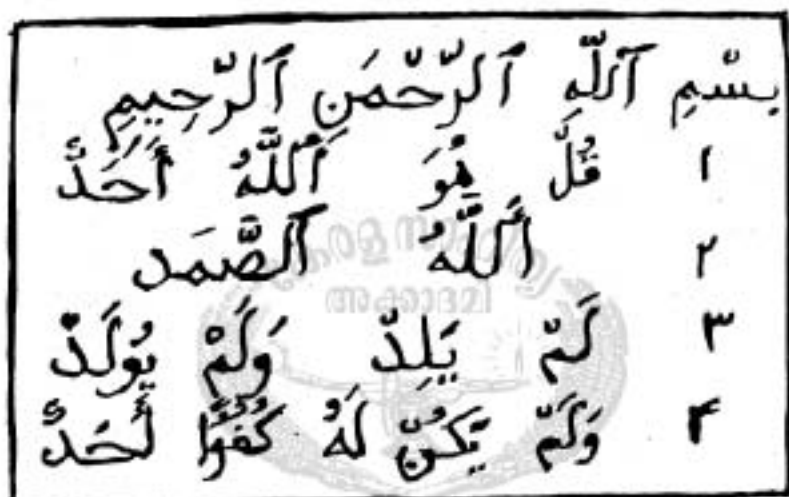 بِسْمِ ٱللّٰهِ ٱلرَّحْمَنِ ٱلرَّحِيمِ
١ قُلْ هُوَ ٱللَّهُ أَحَدٌ
٢ ٱللَّهُ ٱلصَّمَد
٣ لَمْ يَلِدْ وَلَمْ يُولَدْ
۴ وَلَمْ يَكُنْ لَهُ كُفُوًا أَحَدٌ
അക്കാദമി